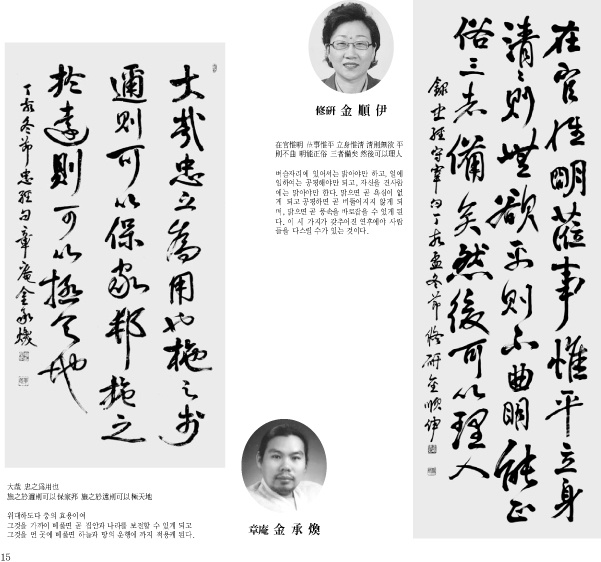 在官惟明蒞事惟平立身
清〻則無欲平則不曲明能正
俗三者備矣然後可以理人
錄忠經守宰句丁亥孟冬節 修研 金順伊
修硏 金順伊
在官惟明 莅事惟平 立身惟清 清則無欲 平
則不曲 明能正俗 三者備矣 然後可以理人
벼슬자리에 있어서는 맑아야만 하고, 일에
임하여는 공평해야만 되고, 자신을 건사함
에는 맑아야만 한다. 맑으면 곧 욕심이 없
게 되고 공평하면 곧 비뚤어지지 않게 되
며, 맑으면 곧 풍속을 바로잡을 수 있게 된
다. 이 세 가지가 갖추어진 연후에야 사람
들을 다스릴 수가 있는 것이다.
大哉忠之爲用也施之於
邇則可以保家邦施之
於遠則可以極天地
丁亥冬節忠經句章庵金承煥
章庵 金承煥
大哉 忠之爲用也
施之於邇則可以保家邦 施之於遠則可以極天地
위대하도다 충의 효용이여
그것을 가까이 베풀면 곧 집안과 나라를 보전할 수 있게 되고
그것을 먼 곳에 베풀면 하늘과 땅의 운행에 까지 적용케 된다.
15